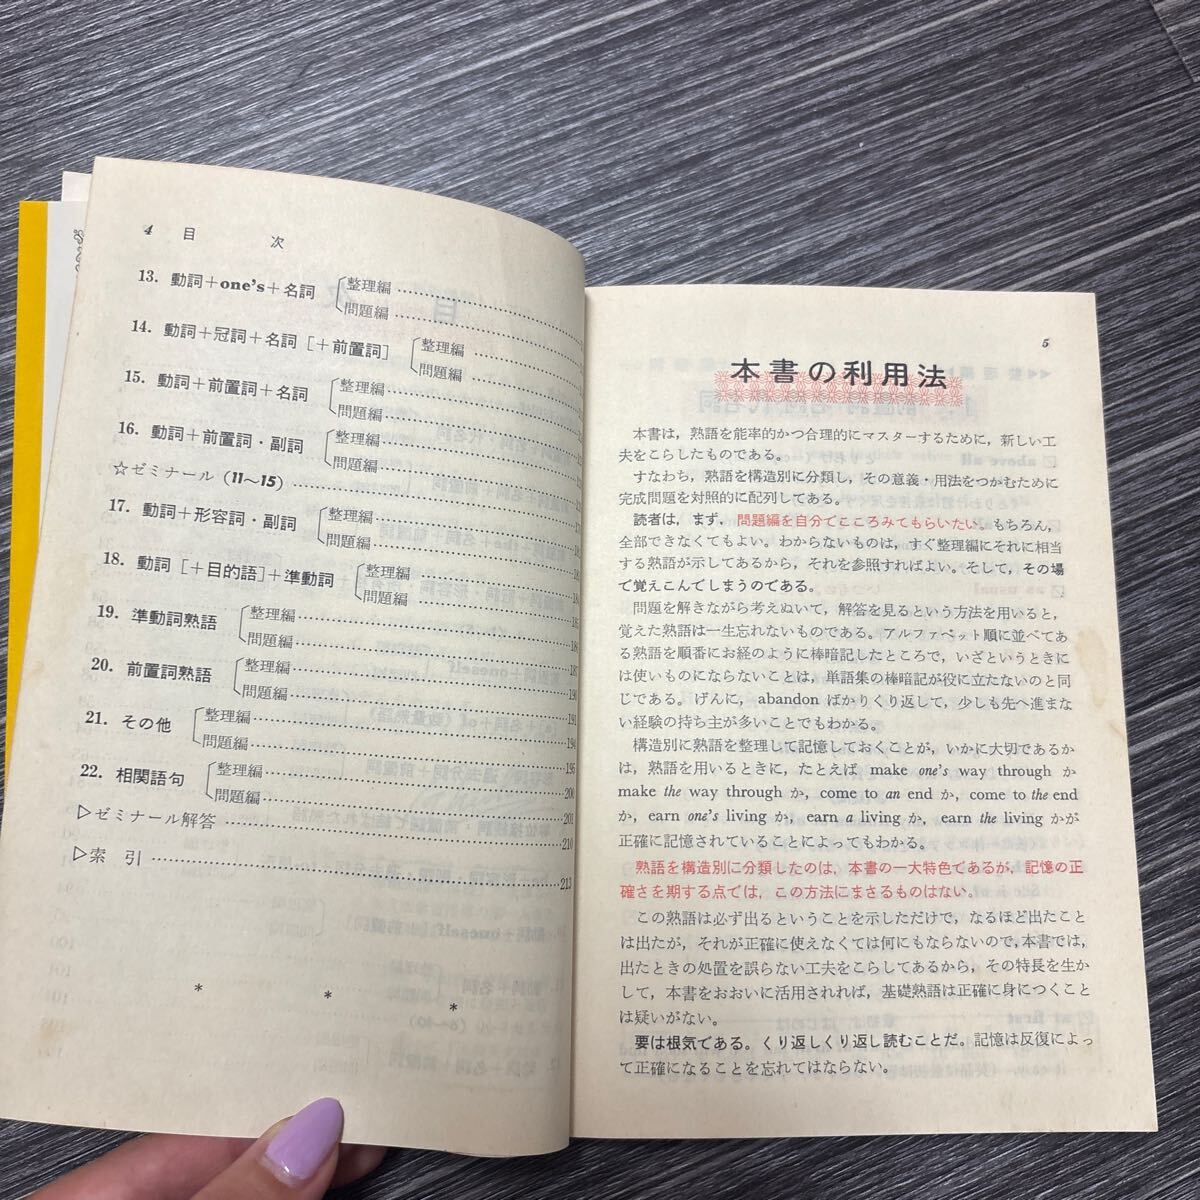 4 目 次
13. 動詞＋one's＋名詞 整理編
問題編
14. 動詞＋冠詞＋名詞［＋前置詞］ 整理編
問題編
15. 動詞＋前置詞＋名詞 整理編
問題編
16. 動詞＋前置詞・副詞 整理編
問題編
☆ゼミナール (11〜15)
17. 動詞＋形容詞・副詞 整理編
問題編
18. 動詞［＋目的語］＋準動詞 整理編
問題編
19. 準動詞熟語 整理編
問題編
20. 前置詞熟語 整理編 187
問題編 190
21. その他 整理編 191
問題編 194
22. 相関語句 整理編 196
問題編 200
▷ゼミナール解答 201
210
▷索 引 213
* * *
5
本書の利用法
本書は，熟語を能率的かつ合理的にマスターするために，新しい工
夫をこらしたものである。
すなわち，熟語を構造別に分類し，その意義・用法をつかむために
完成問題を対照的に配列してある。
読者は，まず，問題編を自分でこころみてもらいたい。もちろん，
全部できなくてもよい。わからないものは，すぐ整理編にそれに相当
する熟語が示してあるから，それを参照すればよい。そして，その場
で覚えこんでしまうのである。
問題を解きながら考えぬいて，解答を見るという方法を用いると，
覚えた熟語は一生忘れないものである。アルファベット順に並べてあ
る熟語を順番にお経のように棒暗記したところで，いざというときに
は使いものにならないことは，単語集の棒暗記が役に立たないのと同
じである。げんに，abandon ばかりくり返して，少しも先へ進まな
い経験の持ち主が多いことでもわかる。
構造別に熟語を整理して記憶しておくことが，いかに大切であるか
は，熟語を用いるときに，たとえば make one's way through か
make the way through か，come to an end か，come to the end
か，earn one's living か，earn a living か，earn the living かが
正確に記憶されていることによってもわかる。
熟語を構造別に分類したのは，本書の一大特色であるが，記憶の正
確さを期する点では，この方法にまさるものはない。
この熟語は必ず出るということを示しただけで，なるほど出たこと
は出たが，それが正確に使えなくては何にもならないので，本書では，
出たときの処置を誤らない工夫をこらしてあるから，その特長を生か
して，本書をおおいに活用されれば，基礎熟語は正確に身につくこと
は疑いがない。
要は根気である。くり返しくり返し読むことだ。記憶は反復によっ
て正確になることを忘れてはならない。